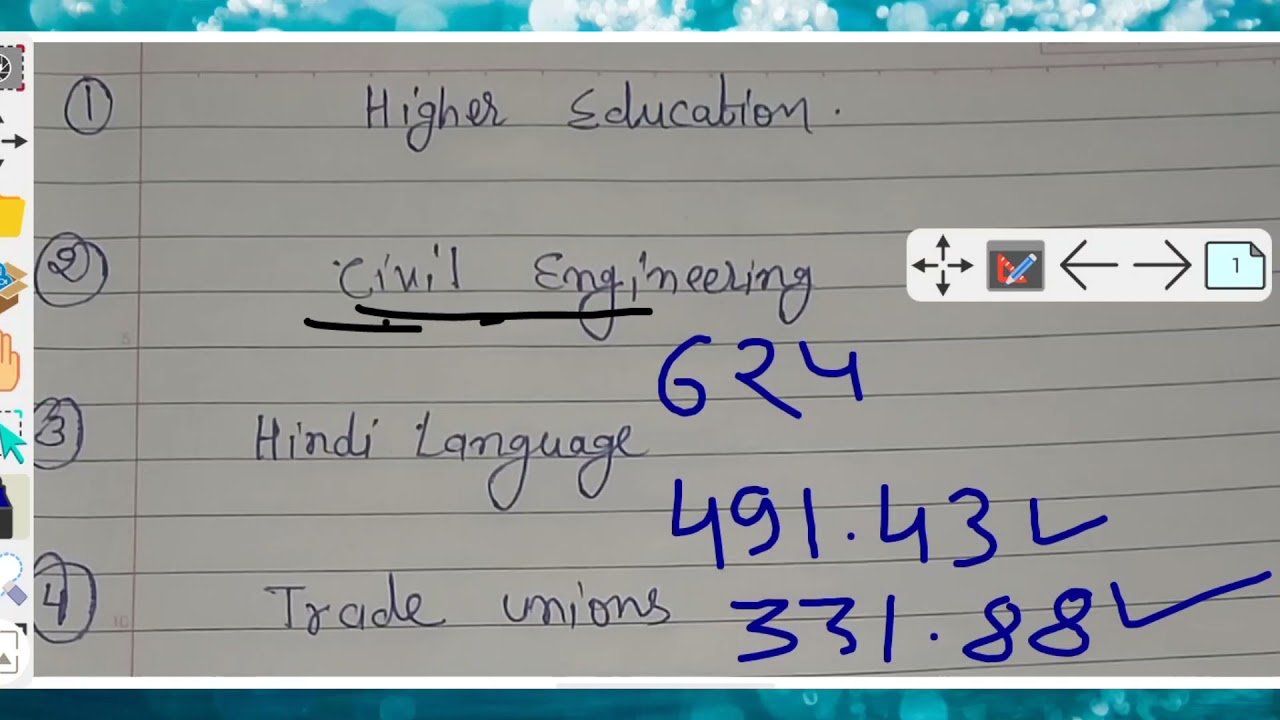 ① Higher Education.
② Civil Engineering
624
③ Hindi Language
491.43
④ Trade unions
331.88
1
5
10